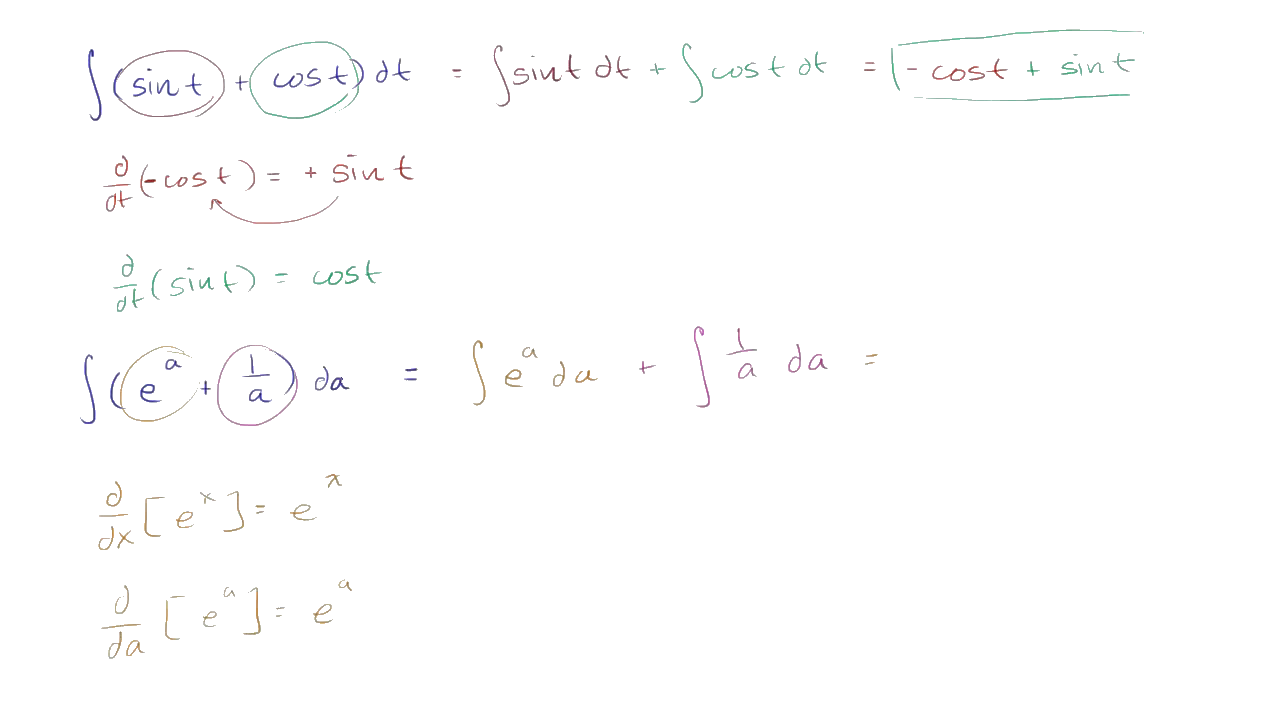 ∫(sin t + cos t) dt = ∫ sin t dt + ∫ cos t dt = - cos t + sin t
d/dt (-cos t) = + sin t
d/dt (sin t) = cos t
∫(e^a + 1/a) da = ∫ e^a da + ∫ 1/a da =
d/dx [e^x] = e^x
d/da [e^a] = e^a